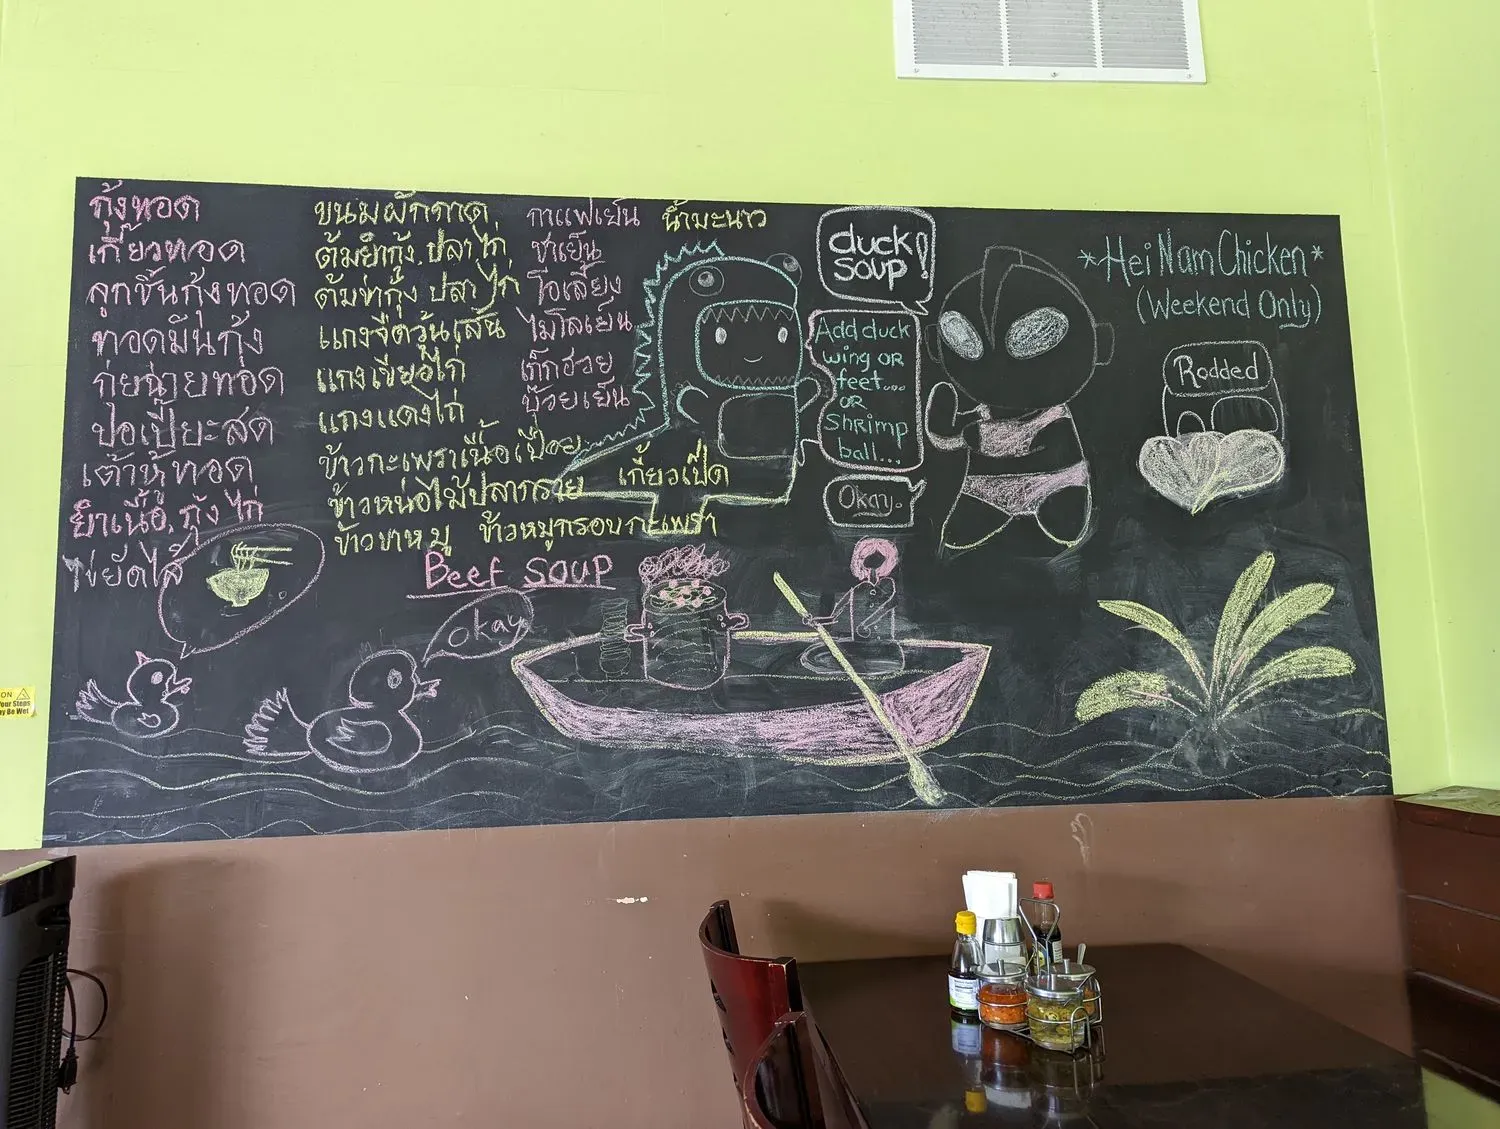 กุ้งทอด
เกี๊ยวทอด
ลูกชิ้นกุ้งทอด
ทอดมันกุ้ง
กุยฉ่ายทอด
ปอเปี๊ยะสด
เต้าหู้ทอด
ยำเนื้อ, กุ้ง ไก่
ไข่ยัดไส้
ขนมผักกาด
ต้มยำกุ้ง ปลา ไก่
ต้มข่ากุ้ง ปลา ไก่
แกงจืดวุ้นเส้น
แกงเขียวไก่
แกงแดงไก่
ข้าวกะเพราเนื้อเปื่อย
ข้าวหน่อไม้ปลากราย
เกี๊ยวเป็ด
ข้าวขาหมู
ข้าวหมูกรอบกะเพรา
Beef SOUP
กาแฟเย็น
ชาเย็น
โอเลี้ยง
ไมโลเย็น
เก็กฮวย
บ๊วยเย็น
น้ำมะนาว
duck
soup!
Add duck
wing OR
feet...
OR
Shrimp
ball...
Okay.
*Hei Nam Chicken*
(Weekend Only)
Rodded
okay
ON
Your Steps
ay Be Wet